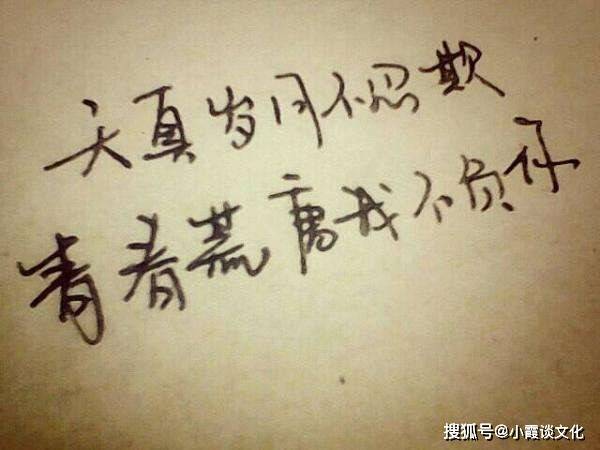 天真岁月不忍欺
青春荒唐我不负你
搜狐号@小霞谈文化